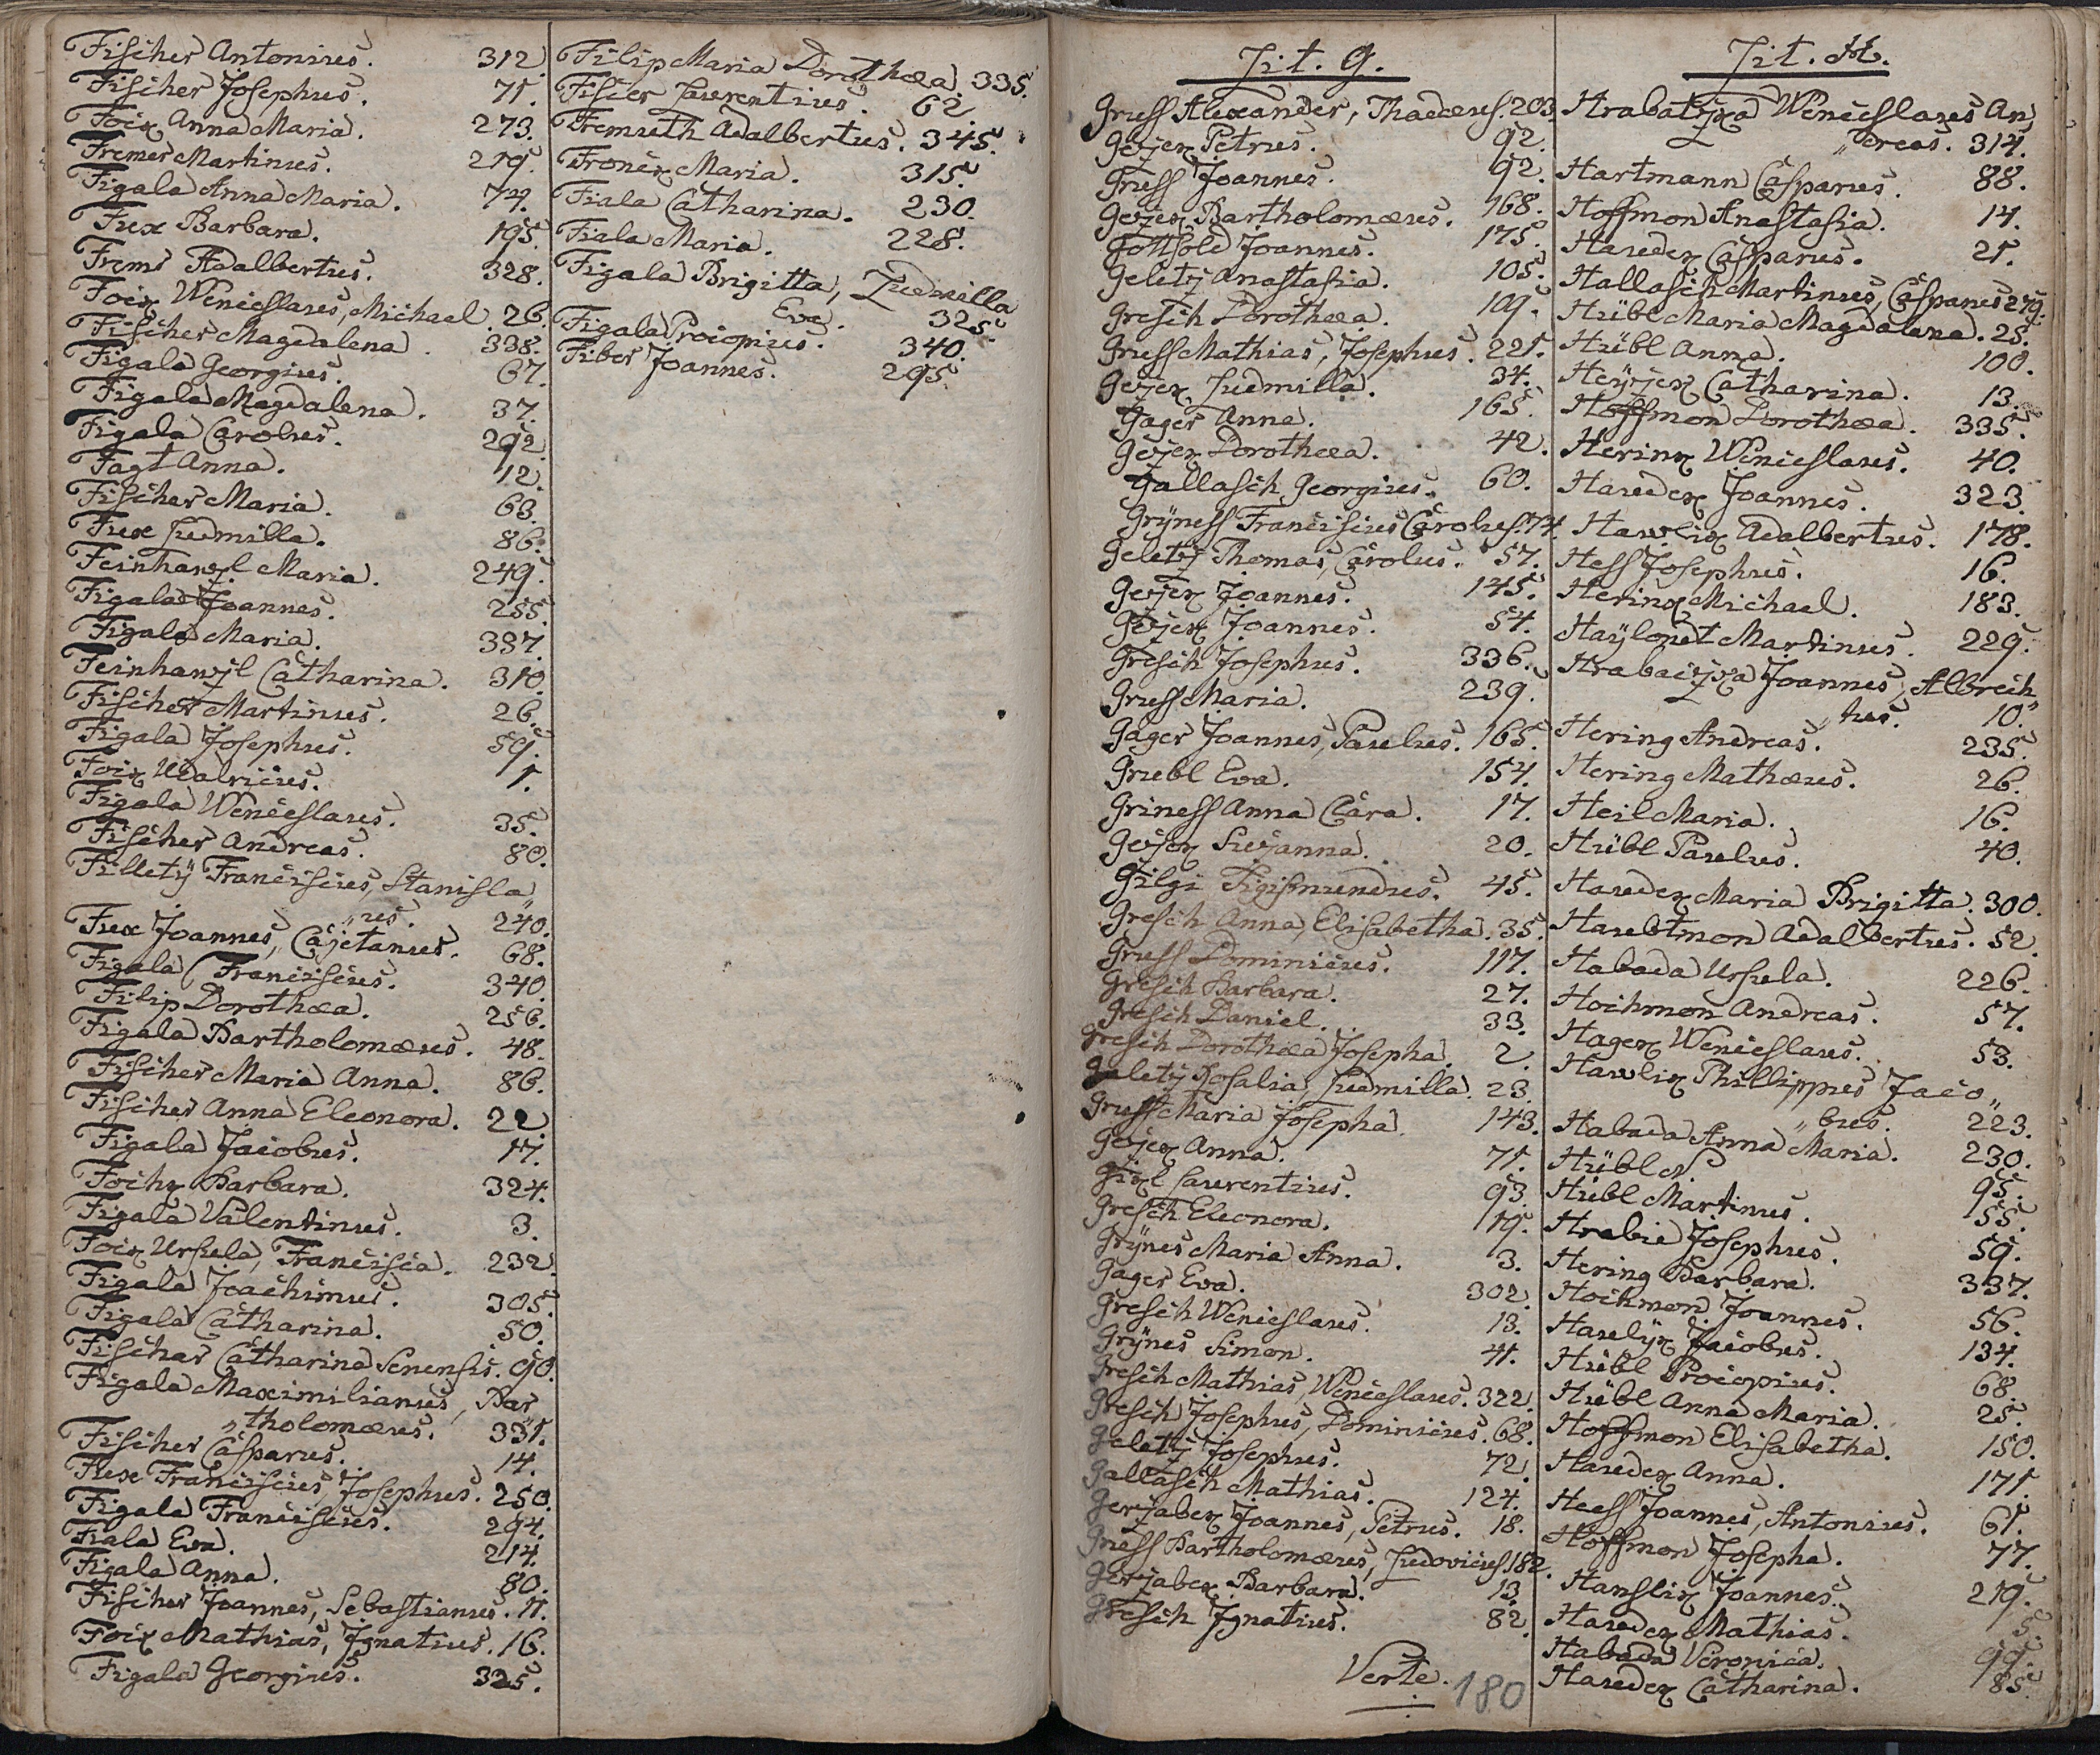 Fischer Antonius. 312
Fischer Josephus. 71.
Foix Anna Maria. 273.
Fremer Martinus. 219.
Figala Anna Maria. 74.
Fux Barbara. 195.
Frems Adalbertus. 328.
Foix Wenceslaus, Michael. 26.
Fischer Magdalena. 338.
Figala Georgius. 67.
Figala Magdalena. 37.
Figala Carolus. 292.
Fagt Anna. 12.
Fischer Maria. 63.
Fux Ludmilla. 86.
Feinhawzl Maria. 249.
Figala Joannes. 255.
Figala Maria. 337.
Feinhawzl Catharina. 310.
Fischer Martinus. 26.
Figala Josephus. 59.
Foix Udalricus. 1.
Figala Wenceslaus. 35.
Fischer Andreas. 80.
Filletÿ Franciscus, Stanisla„
„us. 240.
Fux Joannes, Cajetanus. 68.
Figala Franciscus. 340.
Filip Dorothæa. 256.
Figala Bartholomæus. 48.
Fischer Maria Anna. 86.
Fischer Anna Eleonora. 22.
Figala Jacobus. 17.
Fochz Barbara. 324.
Figala Valentinus. 3.
Foix Ursula, Francisca. 232.
Figala Joachimus. 305.
Figala Catharina. 50.
Fischer Catharina Senensis. 90.
Figala Maximilianus, Bar„
„tholomæus. 331.
Fischer Casparus. 14.
Fux Franciscus, Josephus. 250.
Figala Franciscus. 294.
Fiala Eva. 214.
Figala Anna. 80.
Fischer Joannes, Sebastianus. 11.
Foix Mathias, Ignatius. 16.
Figala Georgius. 325.
Filip Maria Dorothæa. 335.
Fiscer Laurentius. 62
Fremuth Adalbertus. 345.
Fronex Maria. 315.
Fiala Catharina. 230.
Fiala Maria. 228.
Figala Brigitta, Ludmilla
Eva. 325.
Figala Procopius. 340.
Fiber Joannes. 295.
Lit. G.
Gruss Alexander, Thadæus. 203
Gejex Petrus. 92.
Gruss Joannes. 92.
Gejex Bartholomæus. 168.
Gottsold Joannes. 175.
Geletÿ Anastasia. 105.
Gresch Dorothæa. 109.
Gruss Mathias, Josephus. 221.
Gejex Ludmilla. 34.
Gager Anna. 165.
Gejex Dorothæa. 42.
Gallasch Georgius. 60.
Grÿness Franciscus Carolus. 74.
Geletÿ Thomas, Carolus. 57.
Gejex Joannes. 145.
Gejex Joannes. 54.
Gresch Josephus. 336.
Gruss Maria. 239.
Gager Joannes, Paulus. 165.
Grubl Eva. 154.
Griness Anna Clara. 17.
Gejex Susanna. 20.
Gilgi Sigismundus. 45.
Gresch Anna, Elisabetha. 35.
Gruss Dominicus. 117.
Gresch Barbara. 27.
Gresch Daniel. 33.
Gresch Dorothæa Josepha. 2.
Galetÿ Rosalia, Ludmilla. 23.
Gruss Maria Josepha. 143.
Gejex Anna. 71.
Gixl Laurentius. 93.
Gresch Eleonora. 19.
Grÿnes Maria Anna. 3.
Gager Eva. 302.
Gresch Wenceslaus. 13.
Grÿnes Simon. 41.
Gresch Mathias, Wenceslaus. 322.
Gresch Josephus, Dominicus. 68.
Geletÿ Josephus. 72.
Gallasch Mathias. 124.
Gerzabex Joannes, Petrus. 18.
Gruss Bartholomæus, Ludovicus 182.
Gerzabex Barbara. 13.
Gresch Ignatius. 82.
Verte. 180
Lit. H.
Hrabatzka Wenceslaus An„
„dreas. 314.
Hartmann Casparus. 88.
Hoffmon Anastasia. 14.
Haudex Casparus. 21.
Hallasch Martinus, Casparus 279.
Hübl Maria Magdalena. 25.
Hübl Anna. 100.
Heÿzex Catharina. 13.
Hoffmon Dorothæa. 335.
Herinx Wenceslaus. 40.
Haudex Joannes. 323.
Hawlix Adalbertus. 178.
Hess Josephus. 16.
Herinx Michael. 183.
Haÿlout Martinus. 229.
Hrabaczka Joannes, Albrech„
„tus. 10.
Hering Andreas. 235.
Hering Mathæus. 26.
Heil Maria. 16.
Hübl Paulus. 40.
Haudex Maria Brigitta. 300.
Haubtmon Adalbertus. 52
Habada Ursula. 226.
Hochmon Andreas. 57.
Hagex Wenceslaus. 53.
Hawlix Phillippus Jaco„
„bus. 223.
Habada Anna Maria. 230.
Hübl N. 95.
Hübl Martinus. 55.
Hrabie Josephus. 59.
Hering Barbara. 337.
Hochmon Joannes. 56.
Hawlÿx Jacobus. 134.
Hübl Procopius. 68.
Hübl Anna Maria. 25.
Hoffmon Elisabetha. 150.
Haudex Anna. 171.
Heess Joannes, Antonius. 61.
Hoffmon Josepha. 77.
Hanslix Joannes. 219.
Haudex Mathias. 5.
Habada Veronica. 99.
Haudex Catharina. 85.